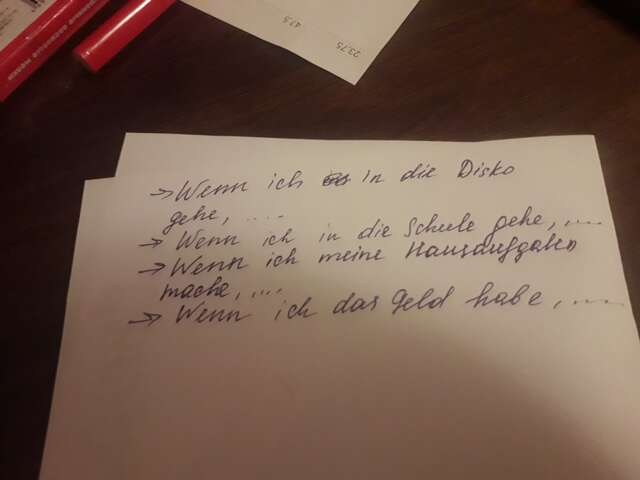 23.75
47.5
→ Wenn ich in die Disko
gehe, .....
→ Wenn ich in die Schule gehe, .....
→ Wenn ich meine Hausaufgaben
mache, ....
→ Wenn ich das Geld habe, ......